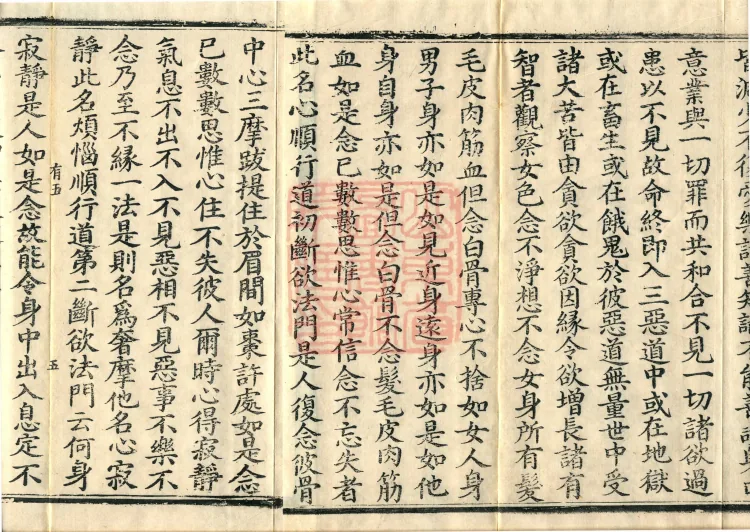 意業與一切罪而共和合不見一切諸欲過
患以不見故命終即入三惡道中或在地獄
或在畜生或在餓鬼於彼惡道無量世中受
諸大苦皆由貪欲貪欲因緣令欲增長諸有
智者觀察女色念不淨想不念女身所有髮
毛皮肉筋血但念白骨專心不捨如女人身
男子身亦如是如見近身遠身亦如是如他
身自身亦如是但念白骨不念髮毛皮肉筋
血如是念已數數思惟心常信念不忘失者
此名心順行道初斷欲法門是人復念彼骨
中心三摩跋提住於眉間如棗許處如是念
已數數思惟心住不失彼人爾時心得寂靜
氣息不出不入不見惡相不見惡事不樂不
念乃至不緣一法是則名爲奢摩他名心寂
靜此名煩惱順行道第二斷欲法門云何身
有五
五
寂靜是人如是念故能令身中出入息定不